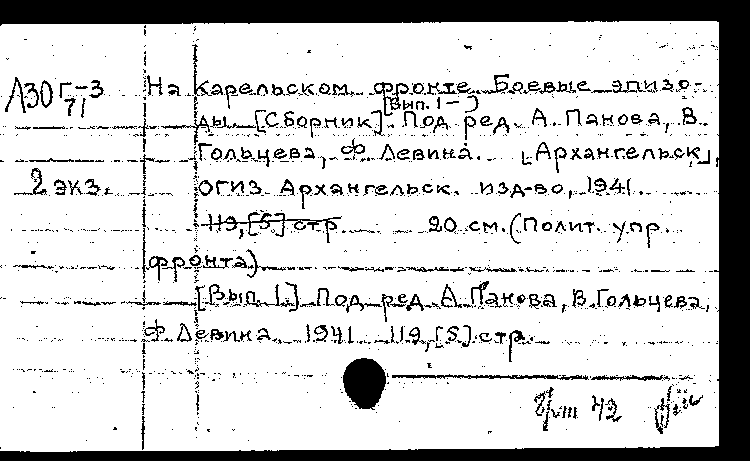 Л30 Г-3
71
На карельском фронте. Боевые эпизо-
[Вып. 1 - ]
ды. [Сборник]. Под ред. А. Панова, В.
Гольцева, Ф. Левина. [Архангельск],
2 экз.
огиз. Архангельск. изд-во, 1941.
119, [5] стр. 20 см. (Полит. упр.
фронта)
[Вып. 1.] Под ред. А. Панова, В. Гольцева,
Ф. Левина. 1941. 119, [5] стр.
42